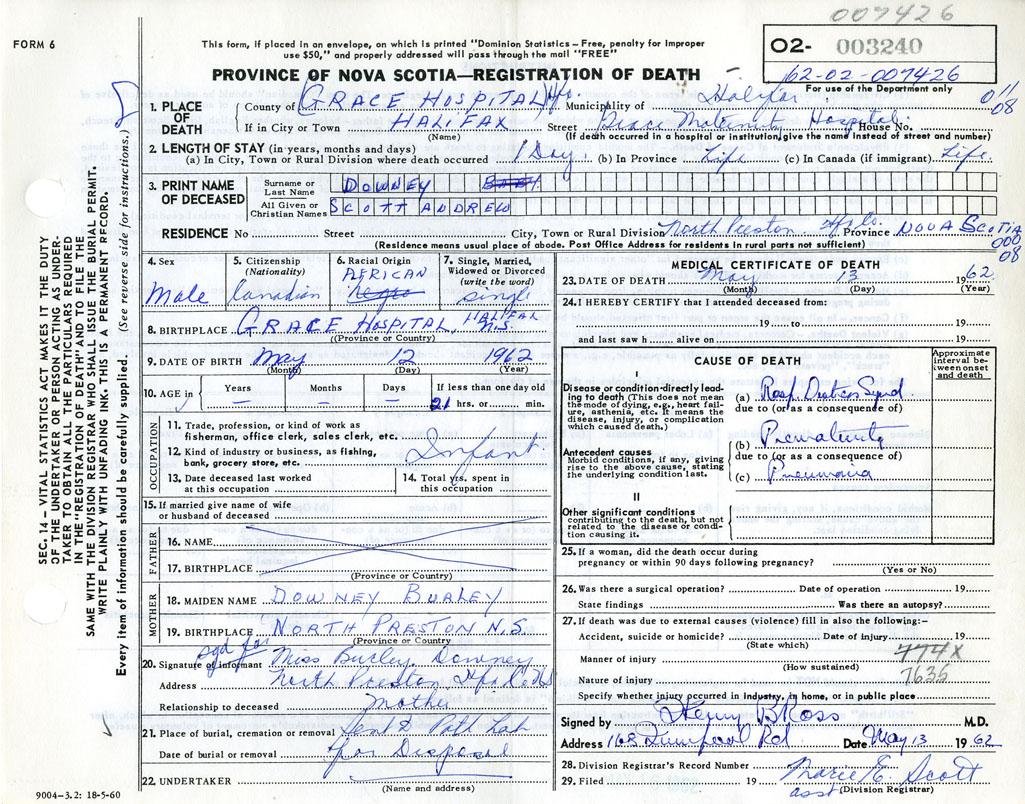 007426
FORM 6
This form, if placed in an envelope, on which is printed "Dominion Statistics – Free, penalty for improper
use $50," and properly addressed will pass through the mail "FREE"
O2- 003240
62-02-007426
For use of the Department only
PROVINCE OF NOVA SCOTIA—REGISTRATION OF DEATH
011
08
1. PLACE OF DEATH
County of GRACE HOSPITAL Hfx. Municipality of Halifax
If in City or Town HALIFAX Street Grace Maternity Hospital House No.
(Name) (If death occurred in a hospital or institution, give the name instead of street and number)
2. LENGTH OF STAY (in years, months and days)
(a) In City, Town or Rural Division where death occurred 1 Day. (b) In Province Life (c) In Canada (if immigrant) Life.
3. PRINT NAME OF DECEASED
Surname or Last Name DOWNEY BABY
All Given or Christian Names SCOTT ANDREW
RESIDENCE No Street City, Town or Rural Division North Preston Hfx Co. Province NOVA SCOTIA
(Residence means usual place of abode. Post Office Address for residents in rural parts not sufficient)
000
08
4. Sex Male
5. Citizenship (Nationality) Canadian
6. Racial Origin AFRICAN negro
7. Single, Married, Widowed or Divorced (write the word) single
8. BIRTHPLACE GRACE HOSPITAL, HALIFAX N.S.
(Province or Country)
9. DATE OF BIRTH May 12 1962
(Month) (Day) (Year)
10. AGE in Years — Months — Days — If less than one day old 21 hrs. or min.
OCCUPATION
11. Trade, profession, or kind of work as fisherman, office clerk, sales clerk, etc.
12. Kind of industry or business, as fishing, bank, grocery store, etc.
Infant
13. Date deceased last worked at this occupation
14. Total yrs. spent in this occupation
15. If married give name of wife or husband of deceased
FATHER
16. NAME
17. BIRTHPLACE
(Province or Country)
MOTHER
18. MAIDEN NAME DOWNEY BURLEY
19. BIRTHPLACE NORTH PRESTON N.S.
(Province or Country)
sgd for
20. Signature of informant Miss Burley Downey
Address North Preston Hfx Co NS
Relationship to deceased Mother
21. Place of burial, cremation or removal Sent to Path Lab
Date of burial or removal for Disposal
22. UNDERTAKER
(Name and address)
9004–3.2: 18-5-60
SEC. 14 – VITAL STATISTICS ACT MAKES IT THE DUTY
OF THE UNDERTAKER OR PERSON ACTING AS UNDER-
TAKER TO OBTAIN ALL THE PARTICULARS REQUIRED
IN THE "REGISTRATION OF DEATH" AND TO FILE THE
SAME WITH THE DIVISION REGISTRAR WHO SHALL ISSUE THE BURIAL PERMIT.
WRITE PLAINLY WITH UNFADING INK. THIS IS A PERMANENT RECORD.
Every item of information should be carefully supplied. (See reverse side for instructions.)
MEDICAL CERTIFICATE OF DEATH
23. DATE OF DEATH May 13 1962
(Month) (Day) (Year)
24. I HEREBY CERTIFY that I attended deceased from:
19 to 19
and last saw h alive on 19
CAUSE OF DEATH
Approximate interval between onset and death
I
Disease or condition directly leading to death (This does not mean the mode of dying, e.g., heart failure, asthenia, etc. It means the disease, injury, or complication which caused death.)
(a) Resp. Distress Synd
due to (or as a consequence of)
(b) Prematurity
due to (or as a consequence of)
Antecedent causes
Morbid conditions, if any, giving rise to the above cause, stating the underlying condition last.
(c) Pneumonia
II
Other significant conditions contributing to the death, but not related to the disease or condition causing it.
25. If a woman, did the death occur during pregnancy or within 90 days following pregnancy?
(Yes or No)
26. Was there a surgical operation? Date of operation 19
State findings Was there an autopsy?
27. If death was due to external causes (violence) fill in also the following:-
Accident, suicide or homicide? Date of injury 19
(State which)
Manner of injury 774X
(How sustained)
Nature of injury 7635
Specify whether injury occurred in industry, in home, or in public place
Signed by Henry B Ross M.D.
Address 168 Date May 13 1962
28. Division Registrar's Record Number
29. Filed 19 Marie E. Scott
asst (Division Registrar)